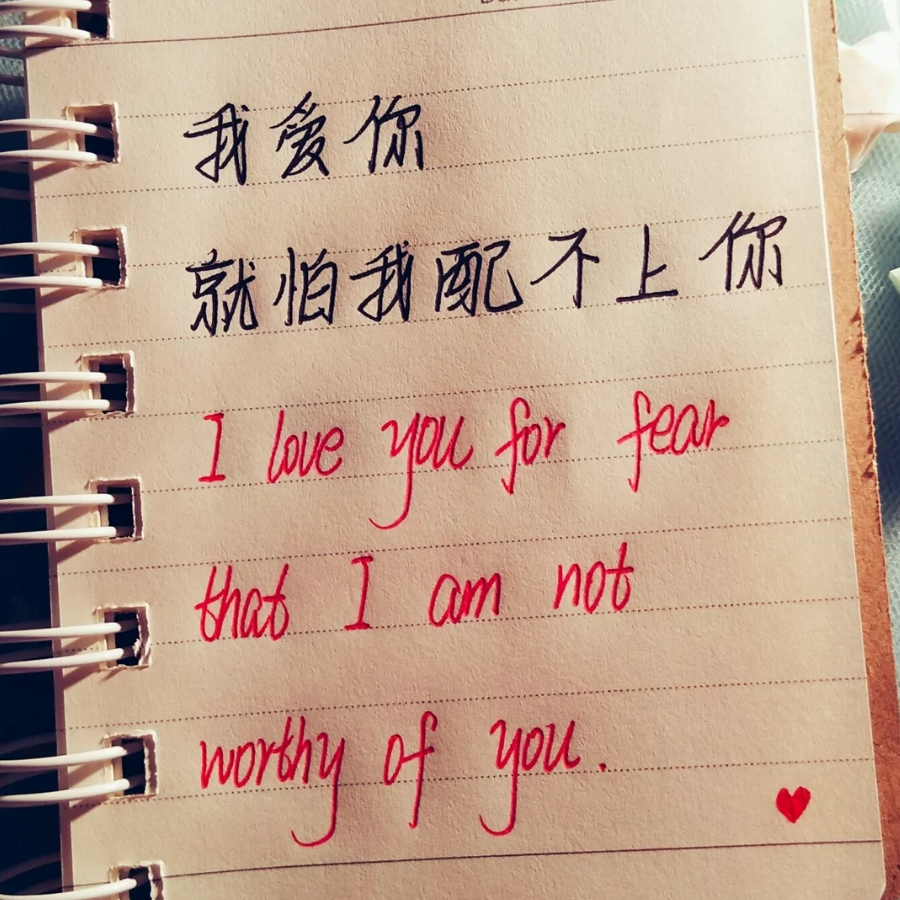 我爱你
就怕我配不上你
I love you for fear
that I am not
worthy of you.